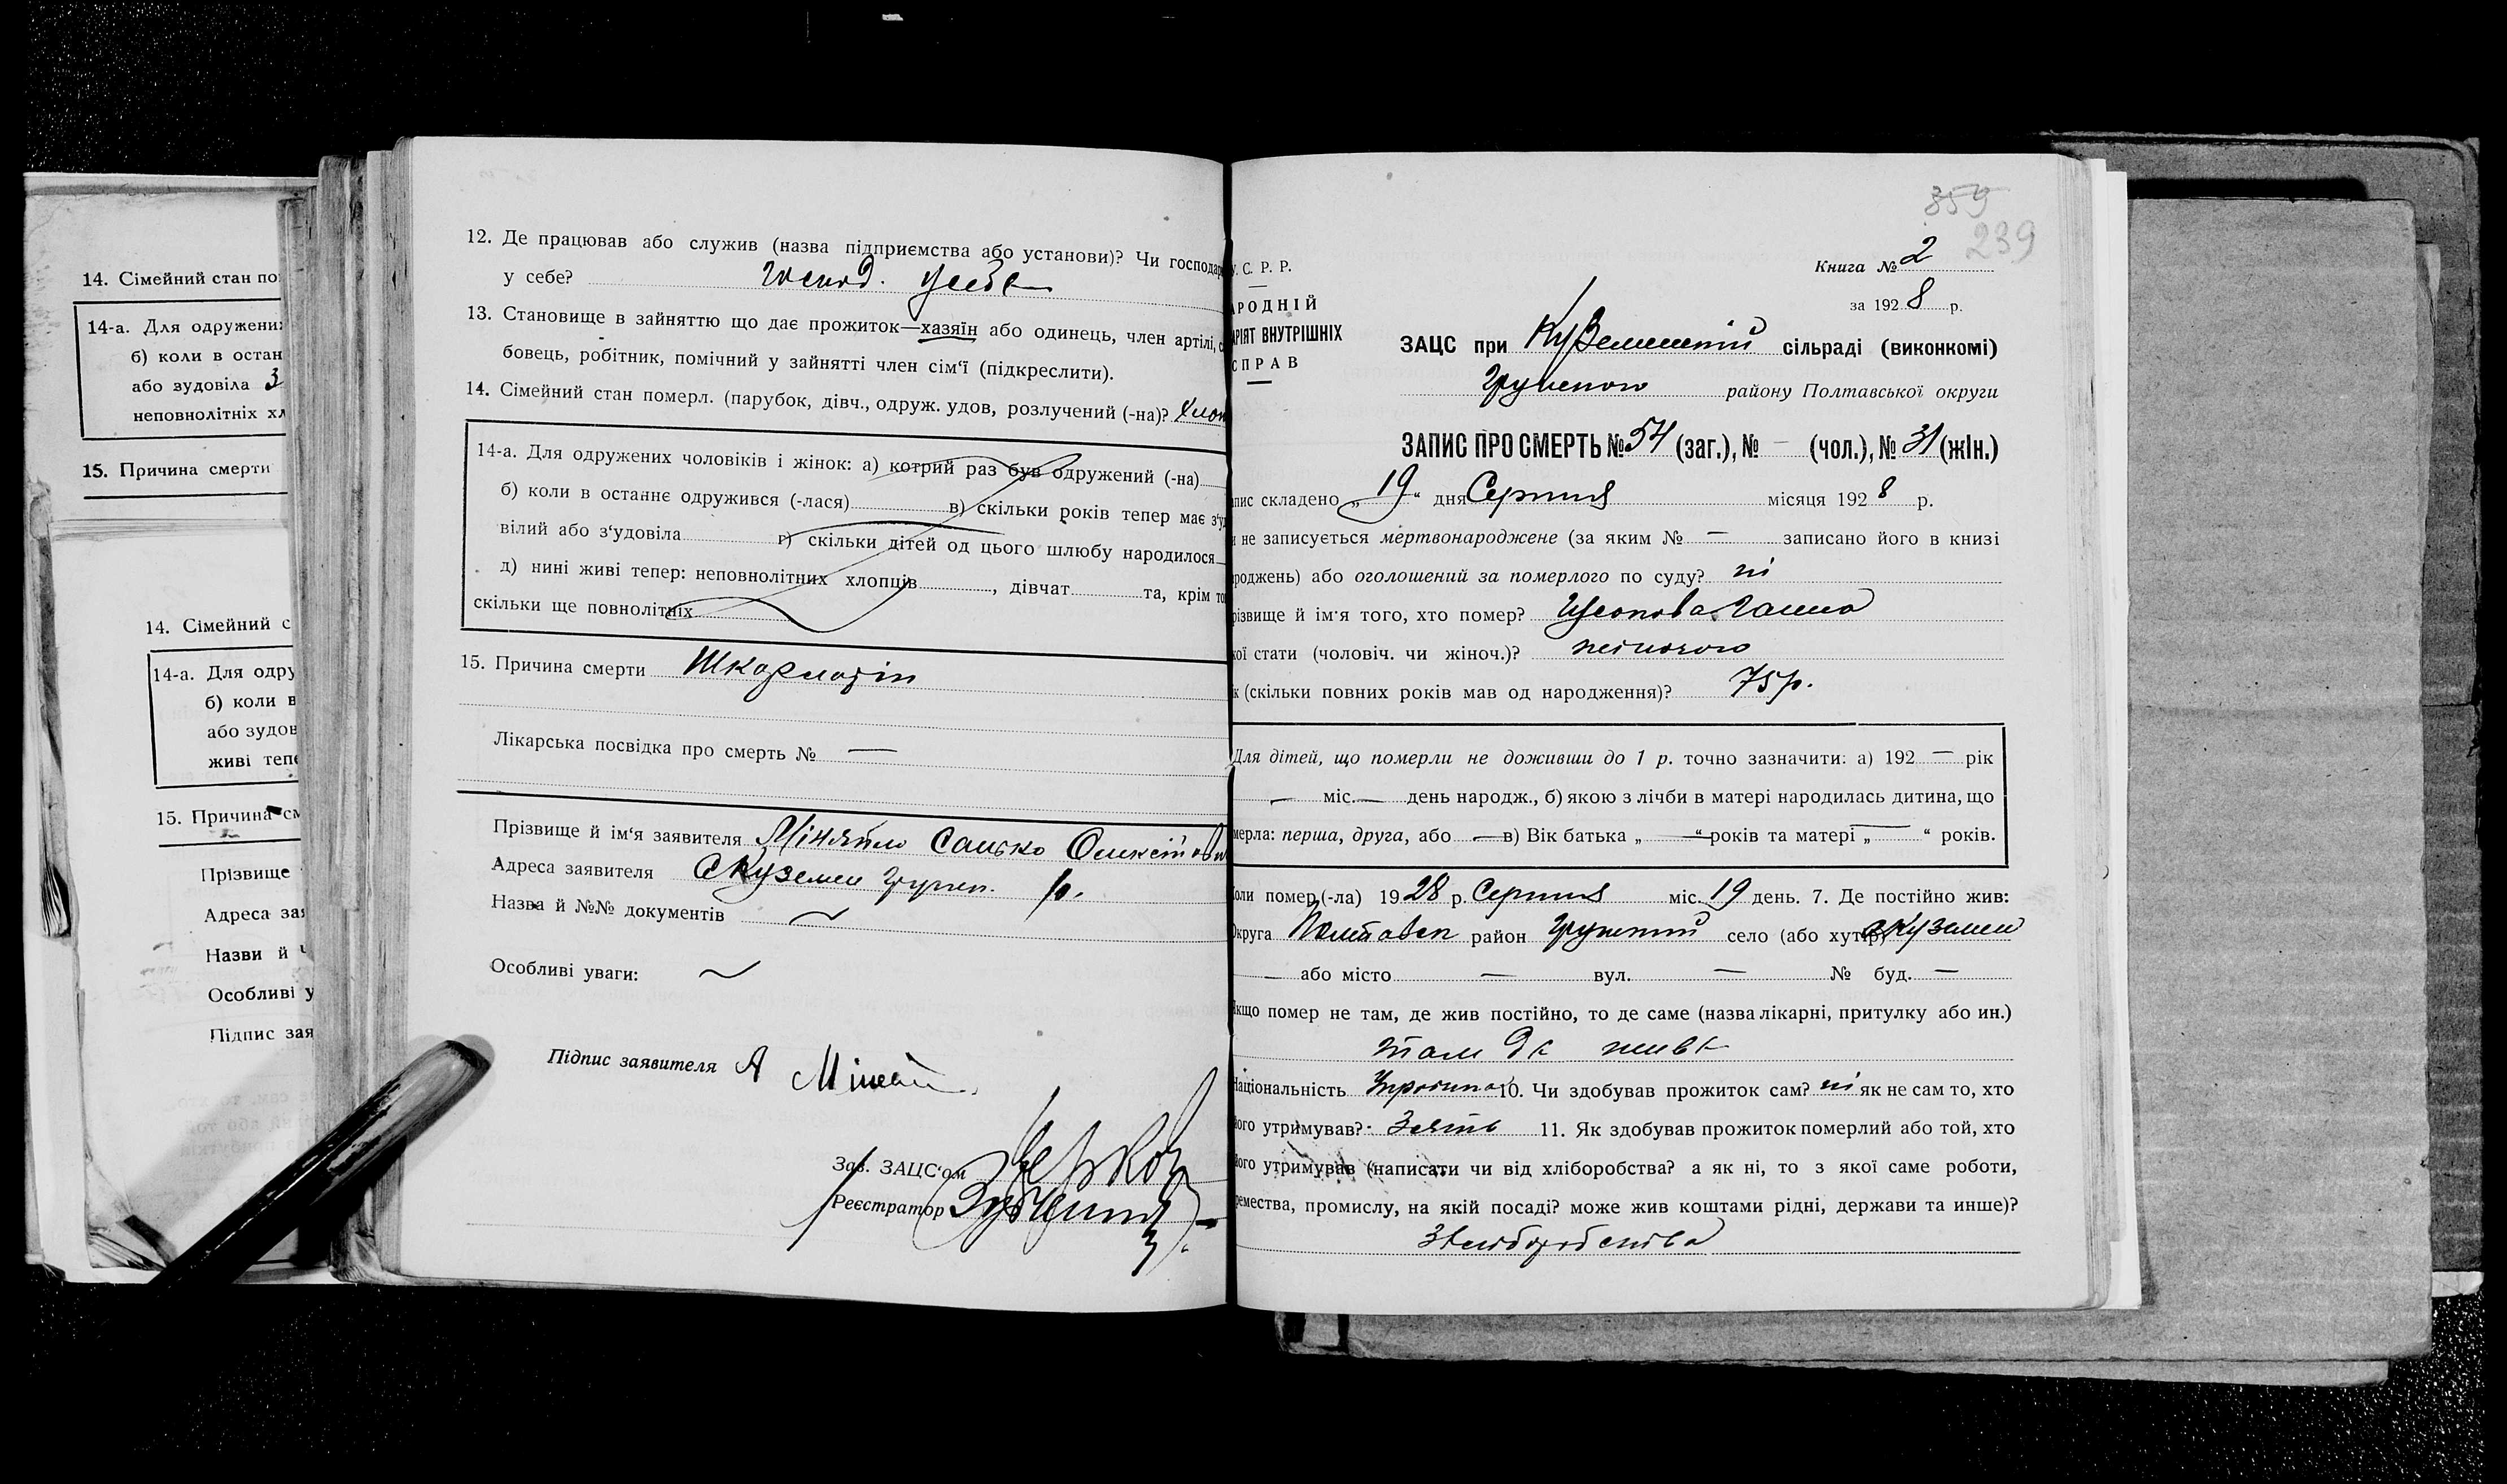 14. Сімейний стан по
14-а. Для одружени
б) коли в остан
або зудовіла З
неповнолітніх хл
15. Причина смерти
14. Сімейний с
14-а. Для одру
б) коли в
або зудов
живі тепе
15. Причина см
Прізвище
Адреса зая
Назви й ч
Особливі у
Підпис зая
12. Де працював або служив (назва підприємства або установи)? Чи господар
у себе? Господ. у себе
13. Становище в зайняттю що дає прожиток—хазяїн або одинець, член артілі, с
бовець, робітник, помічний у зайнятті член сім'ї (підкреслити).
14. Сімейний стан померл. (парубок, дівч., одруж. удов, розлучений (-на)? Хлоп
14-а. Для одружених чоловіків і жінок: а) котрий раз був одружений (-на)
б) коли в останнє одружився (-лася) в) скільки років тепер має з'уд
вілий або з'удовіла г) скільки дітей од цього шлюбу народилося
д) нині живі тепер: неповнолітних хлопців, дівчат та, крім то
скільки ще повнолітніх
15. Причина смерти Шкарлатін
Лікарська посвідка про смерть № —
Прізвище й ім'я заявителя Міняйло Санько
Адреса заявителя с Куземен Грунен. р.
Назва й №№ документів
Особливі уваги:
Підпис заявителя А Міняй
Зав. ЗАЦС'ом
Реєстратор
359
239
Книга № 2
за 1928 р.
У. С. Р. Р.
АРОДНІЙ
АРІЯТ ВНУТРІШНІХ
СПРАВ
ЗАЦС при Куземенській сільраді (виконкомі)
Грунського району Полтавської округи
ЗАПИС ПРО СМЕРТЬ № 54 (заг.), № — (чол.), № 31 (жін.)
пис складено „19“ дня Серпня місяця 1928 р.
и не записується мертвонароджене (за яким № — записано його в книзі
роджень) або оголошений за померлого по суду? ні
різвище й ім'я того, хто помер? Ганна
кої стати (чоловіч. чи жіноч.)? жіночого
к (скільки повних років мав од народження)? 75 р.
Для дітей, що померли не доживши до 1 р. точно зазначити: а) 192 — рік
— міс. — день народж., б) якою з лічби в матері народилась дитина, що
мерла: перша, друга, або — в) Вік батька „—“ років та матері „—“ років.
Коли помер (-ла) 1928 р. Серпня міс. 19 день. 7. Де постійно жив:
Округа Полтавск район Грунський село (або хутір) с Куземен
— або місто — вул. — № буд. —
Якщо помер не там, де жив постійно, то де саме (назва лікарні, притулку або ин.)
там де живе
Національність Українка 10. Чи здобував прожиток сам? ні як не сам то, хто
його утримував? Зять 11. Як здобував прожиток померлий або той, хто
його утримував (написати чи від хліборобства? а як ні, то з якої саме роботи,
ремества, промислу, на якій посаді? може жив коштами рідні, держави та инше)?
З хліборобства